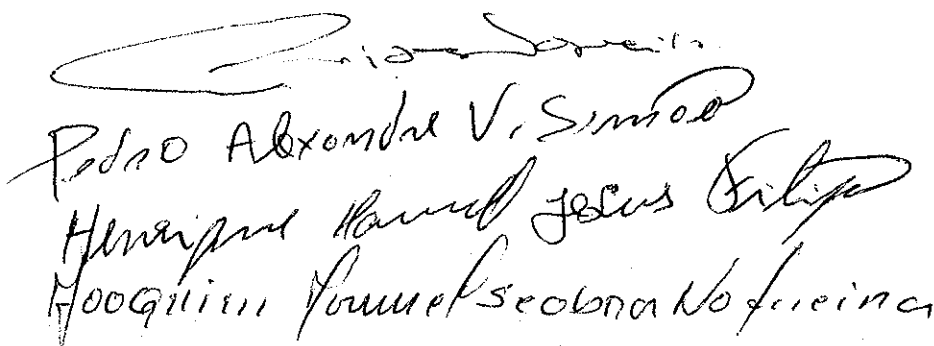 Pedro Alexandre V. Simões
Henrique Manuel Jesus Filipe
Joaquim Manuel Seabra Nogueira